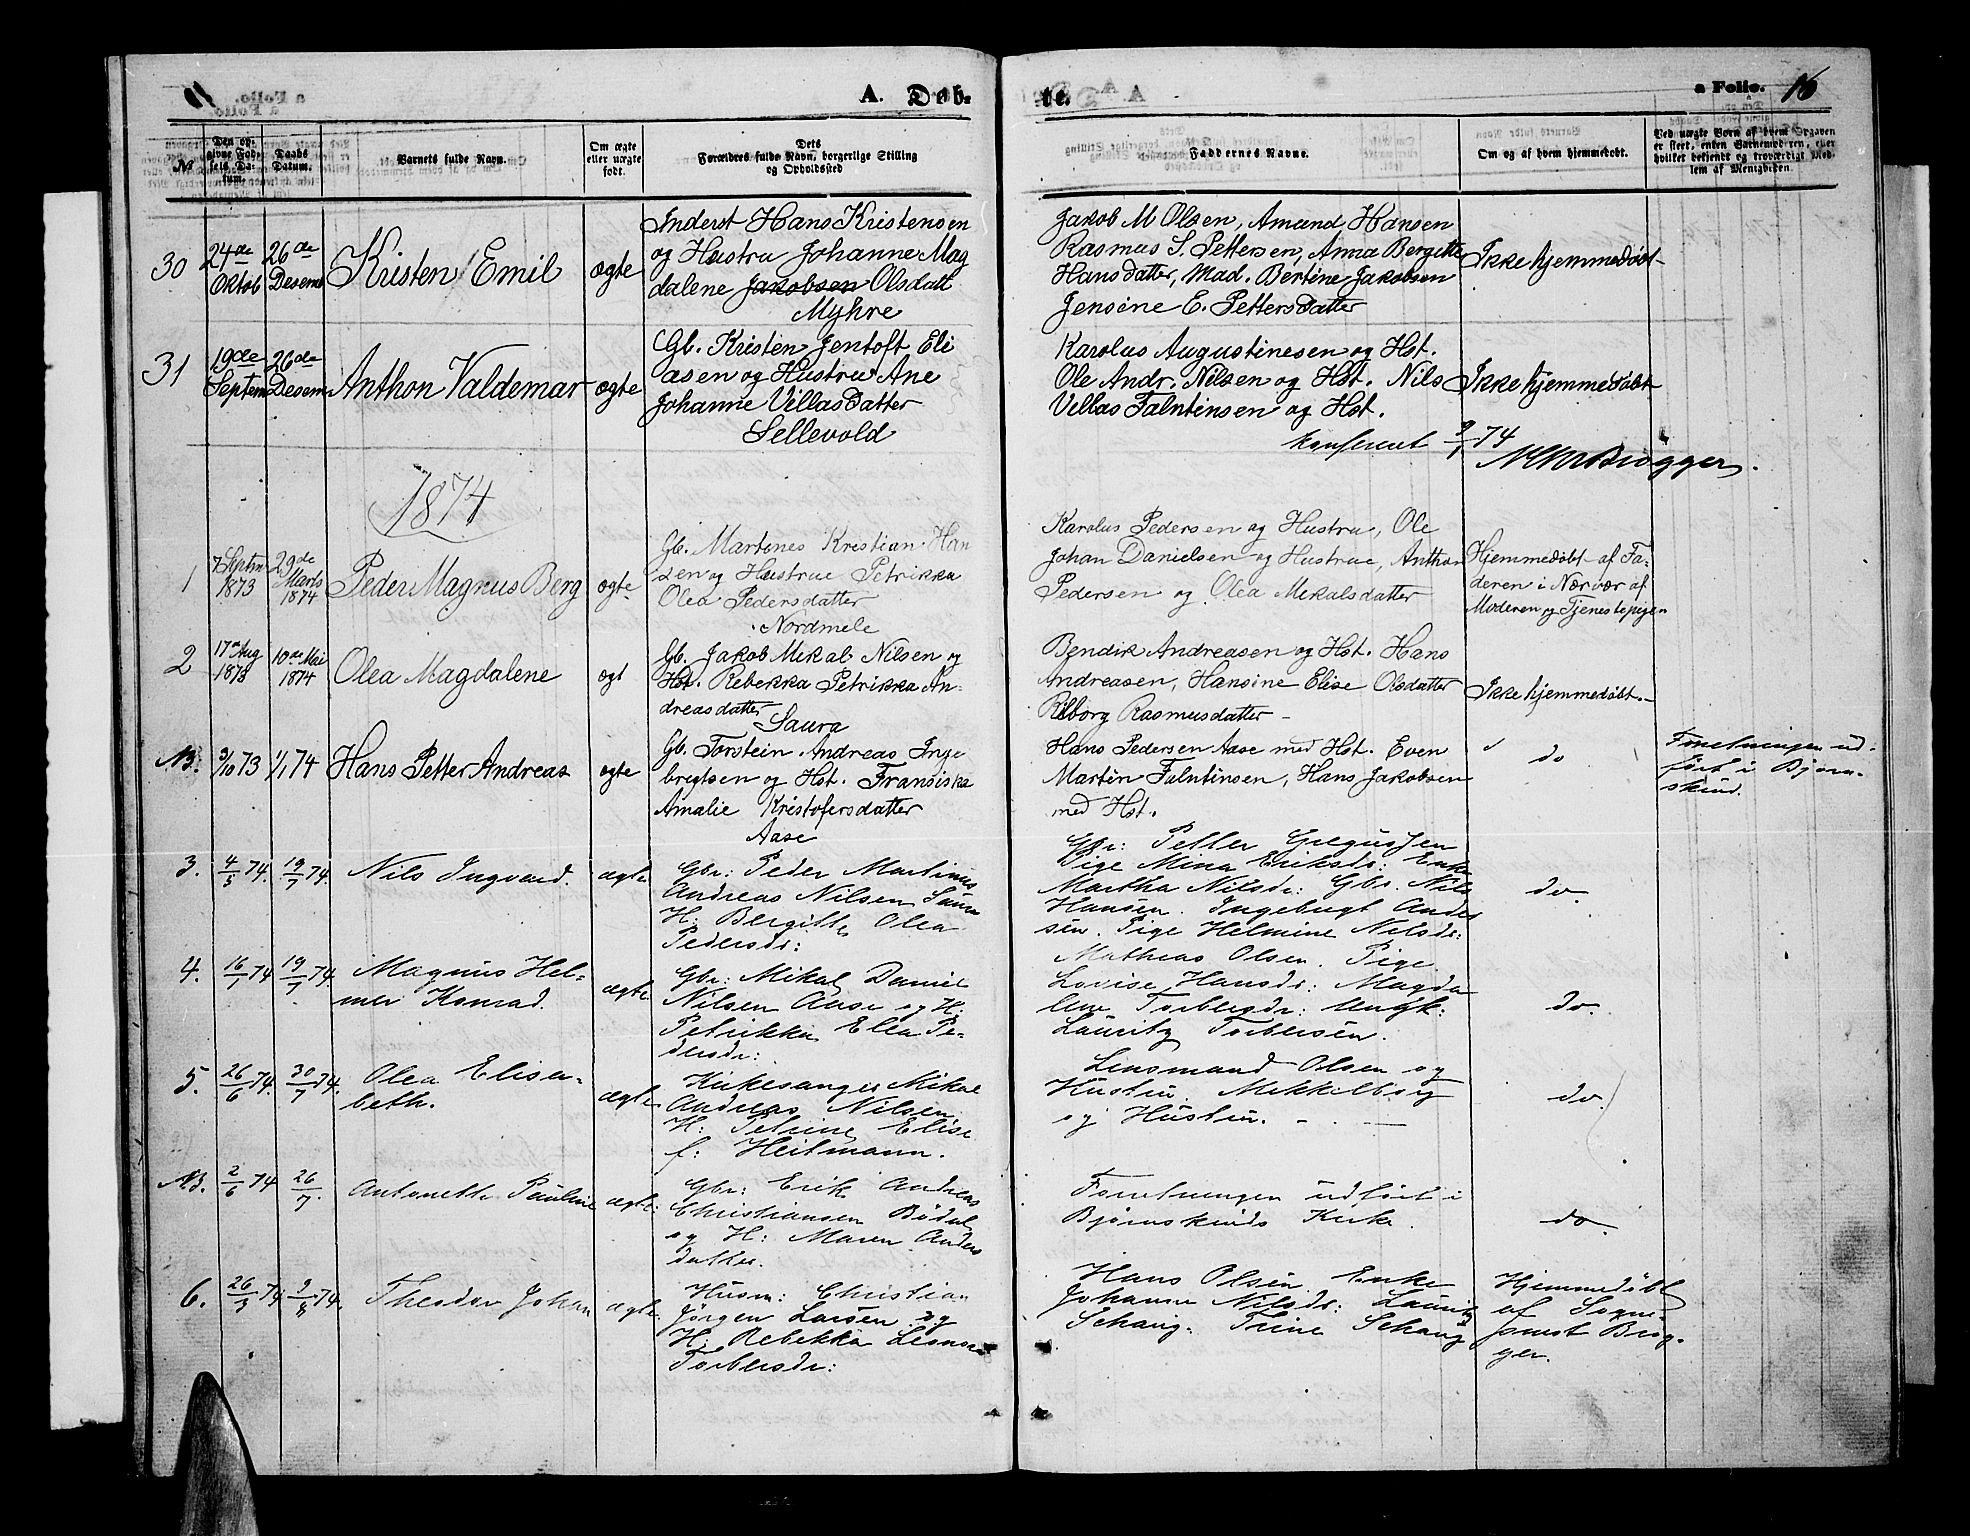 a Folio.
A. Døb-
te.
a Folio. 16
№
Den op-
givne Fød-
sels Da-
tum.
Daabs
Datum.
Barnets fulde Navn.
Om ægte
eller uægte
født.
Dets
Forældres fulde Navn, borgerlige Stilling
og Opholdssted
Faddernes Navne.
Om og af hvem hjemmedøbt.
Ved uægte Børn af hvem Opgaven
er skeet, enten Barnemoderen, eller
hvilket bekjendt og troværdigt Med-
lem af Menigheden.
30
24de
Oktob
26de
Desemb
Kristen Emil
ægte
Inderst Hans Kristensen
og Hustru Johanne Mag
dalene Jakobsen Olsdatt
Myhre
Jakob M Olsen, Amund Hansen
Rasmus S. Pettersen, Anna Bergitte
Hansdatter, Mad. Bertine Jakobsen
Jensine E. Pettersdatter
Ikke hjemmedøbt
31
19de
Septem
26de
Desem
Anthon Valdemar
ægte
Gb. Kristen Jentoft Eli
asen og Hustru Ane
Johanne Vellasdatter
Sellevold
Karolus Augustinesen og Hst.
Ole Andr. Nilsen og Hst. Nils
Vellas Falntinsen og Hst.
Ikke hjemmedøbt
Konfereret 9/1 74
Brøgger.
1874
1
7 Septm
1873
29de
Marts
1874
Peder Magnus Berg
ægte
Gb. Martines Kristian Han
sen og Hustrue Petrikka
Olea Pedersdatter
Nordmele
Karolus Pedersen og Hustru, Ole
Johan Danielsen og Hustrue, Anthon
Pedersen og Olea Mekalsdatter
Hjemmedøbt af Fa-
deren i Nærvær af
Moderen og Tjenestepigen
2
17 Aug
1873
10de Mai
1874
Olea Magdalene
ægt
Gb. Jakob Mekal Nilsen og
Hst. Rebekka Petrikka An-
dreasdatter
Saura
Bendik Andreasen og Hst. Hans
Andreasen, Hansine Elise Olsdatter
Rilborg Rasmusdatter -
Ikke hjemmedøbt.
NB.
3/10 73
1/1 74
Hans Petter Andreas
ægte
Gb. Torstein Andreas Inge
brigtsen og Hst. Fransiska
Amalie Kristofersdatter
Aase
Hans Pedersen Aase med Hst. Even
Martin Falntinsen, Hans Jakobsen
med Hst.
do
Forretningen ud-
ført i Bjørn-
skind.
3.
4/3 74.
19/7 74.
Nils Ingvard.
ægte
Gbr: Peder Martinus
Andreas Nilsen Saura
H: Bergitte Olea
Pedersdr:
Gbr: Petter Gregusjen
Pige Mina Eriksdr: Enke
Martha Nilsdr: Gbr. Nils
Hansen. Ingebrigt Ander
sen. Pige Helmine Nilsdr:
do.
4.
16/1 74
19/7 74
Magnus Hel-
mer Konrad.
ægte
Gbr: Mikal Daniel
Nilsen Aase og H:
Petrikka Elea Pe-
dersdr:
Mathias Olsen. Pige
Lovise Hansdr: Magda
lene Torbersdr: Ungk:
Lauritz Torbersen.
do.
5.
26/6 74.
30/7 74.
Olea Elisa-
beth.
ægte
Kirkesanger Mikal
Andreas Nilsen
H: Petrine Elise
f: Heitmann.
Lensmand Olsen og
Hustru. Mekkelborg
og Hustru. - . -
do.
NB.
2/6 74
26/7.
Antonette Pauline
ægte:
Gbr: Erik Andreas
Christiansen Bødal
og H: Maren Anders
datter.
Forretningen udført i
Bjørnskinds Kirke.
do.
6.
26/3 74
9/8 74.
Theodor Johan
ægte
Husm: Christian
Jørgen Larsen og
H: Rebekka Leonora
Torbersdr:
Hans Olsen Enke
Johanna Nilsdr: Lauritz
Schang. Trine Schang
Hjemmedøbt
af Sogne-
præst Brøg-
ger.